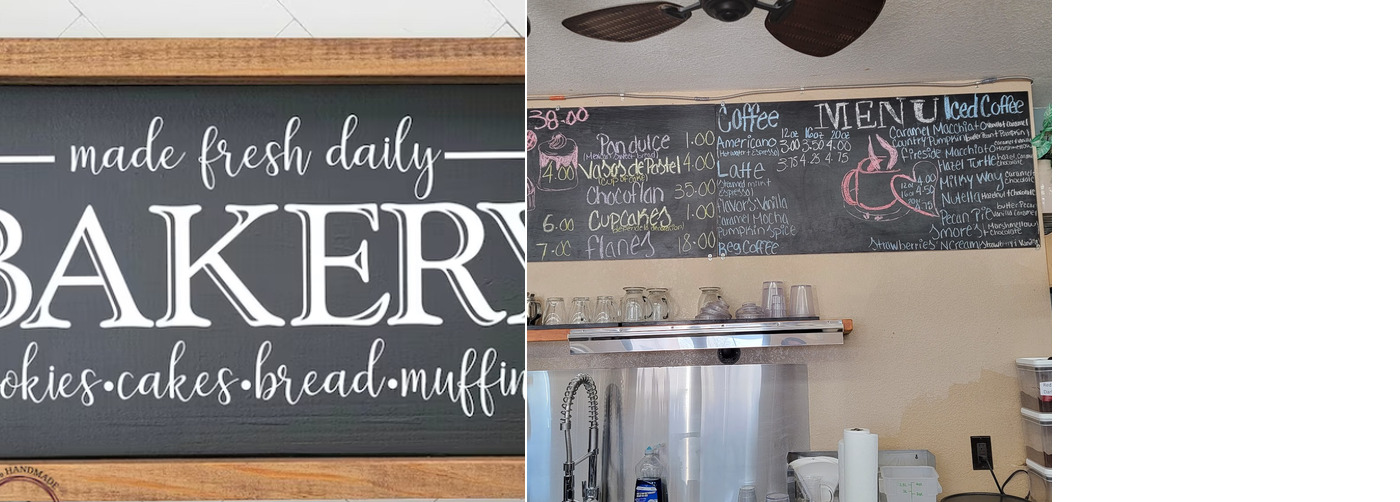 made fresh daily
BAKERY
okies•cakes•bread•muffin
HANDMADE
38.00
Pan dulce 1.00
4.00 Vasos de Pastel 4.00
Chocoflan 35.00
6.00 Cupcakes 1.00
7.00 flanes 18.00
Coffee
12oz 16oz 20oz
Americano 3.00 3.50 4.00
(Hot water + Espresso)
3.75 4.25 4.75
Latte
(Steamed milk +
espresso)
flavors: Vanilla
Caramel Mocha
Pumpkin Spice
Reg Coffee
MENU
Iced Coffee
Caramel Macchiato
Country Pumpkin
Fireside Macchiato
Hazel Turtle
Milky Way Caramel
Chocolate
12oz 4.00
16oz 4.50
Nutella Hazelnut + Chocolate
Pecan Pie butter Pecan
Vanilla Caramel
Smores Marshmallow
Chocolate
Strawberries N Cream